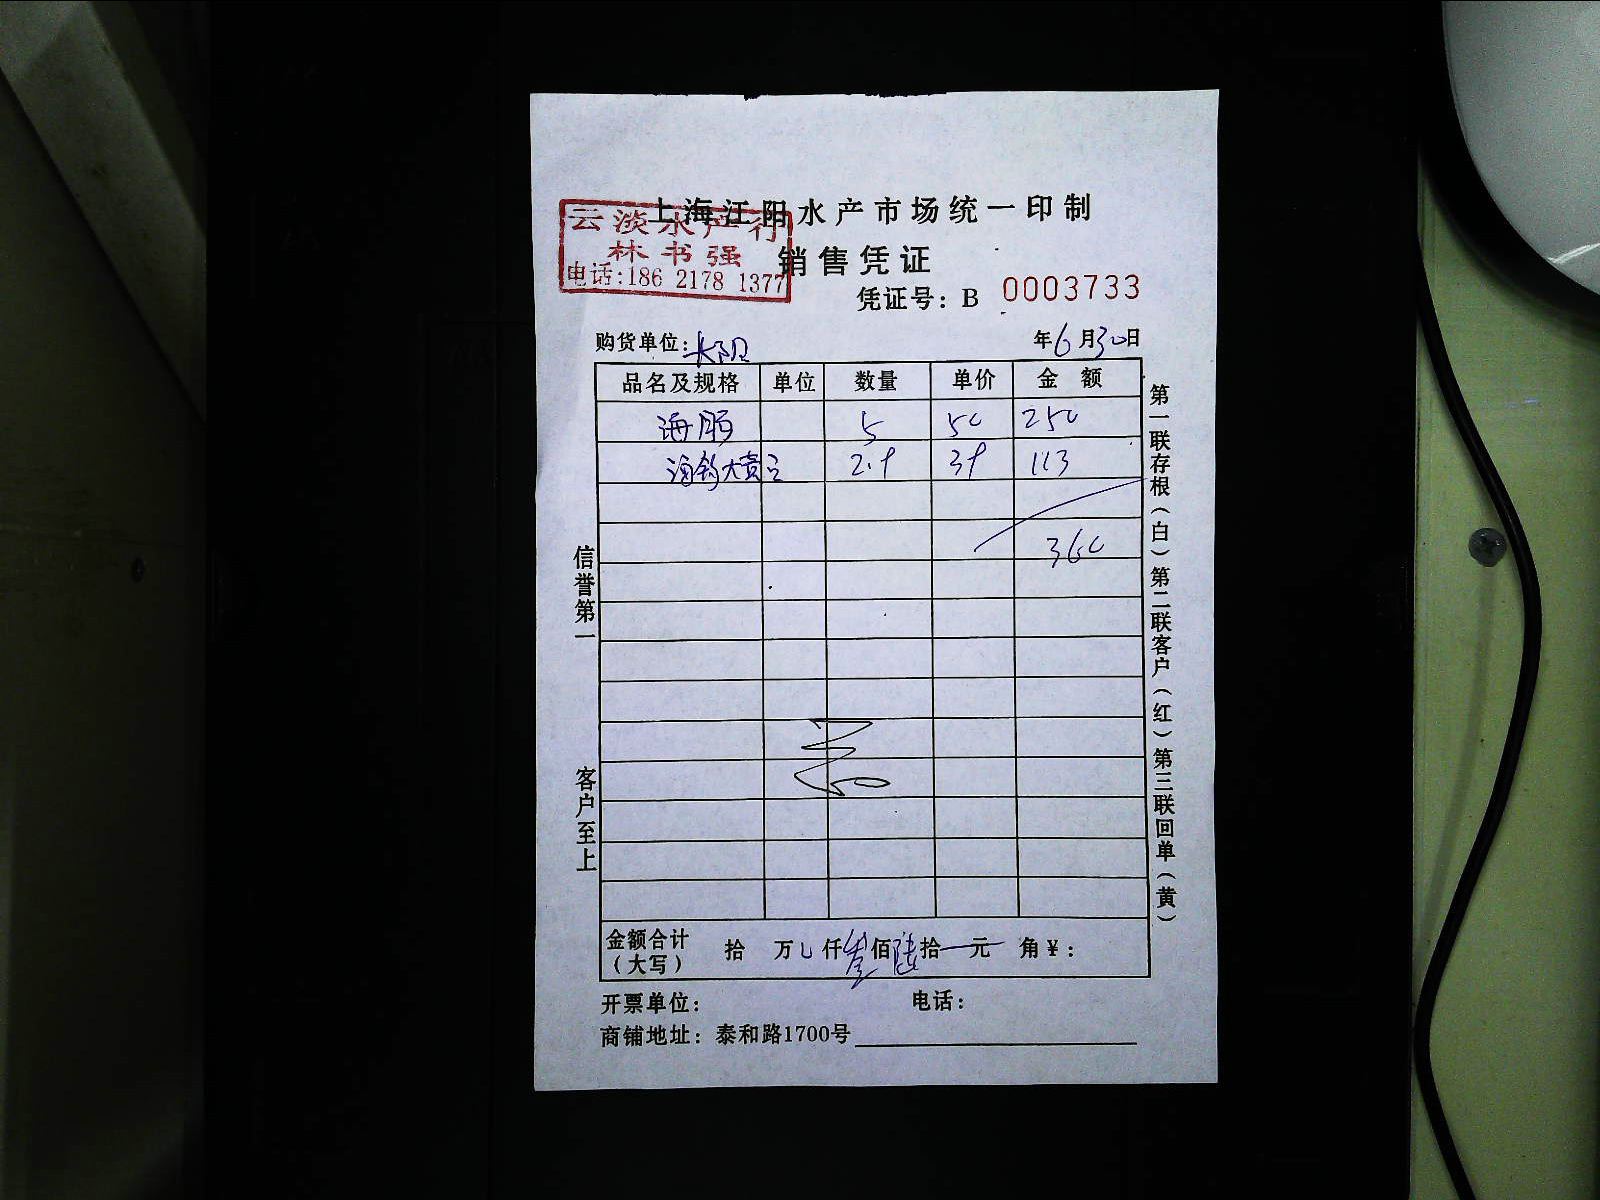 上海江阳水产市场统一印制
云淡水产行
林书强
电话:186 2178 1377
销售凭证
凭证号：B 0003733
购货单位：
年6月30日
品名及规格 单位 数量 单价 金额
海肠 5 50 250
113
360
信誉第一
客户至上
第一联存根（白）第二联客户（红）第三联回单（黄）
金额合计（大写） 拾 万 仟叁佰陆拾 元 角￥：
开票单位： 电话：
商铺地址：泰和路1700号